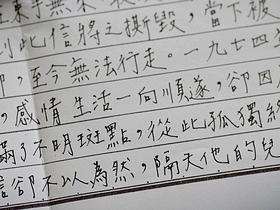 東手無
到此信將之撕毀,當下被
,至今無法行走。一九七四
,感情生活一向順遂,卻因
滿了不明斑點,從此孤獨終
信卻不以為然,隔天他的兒